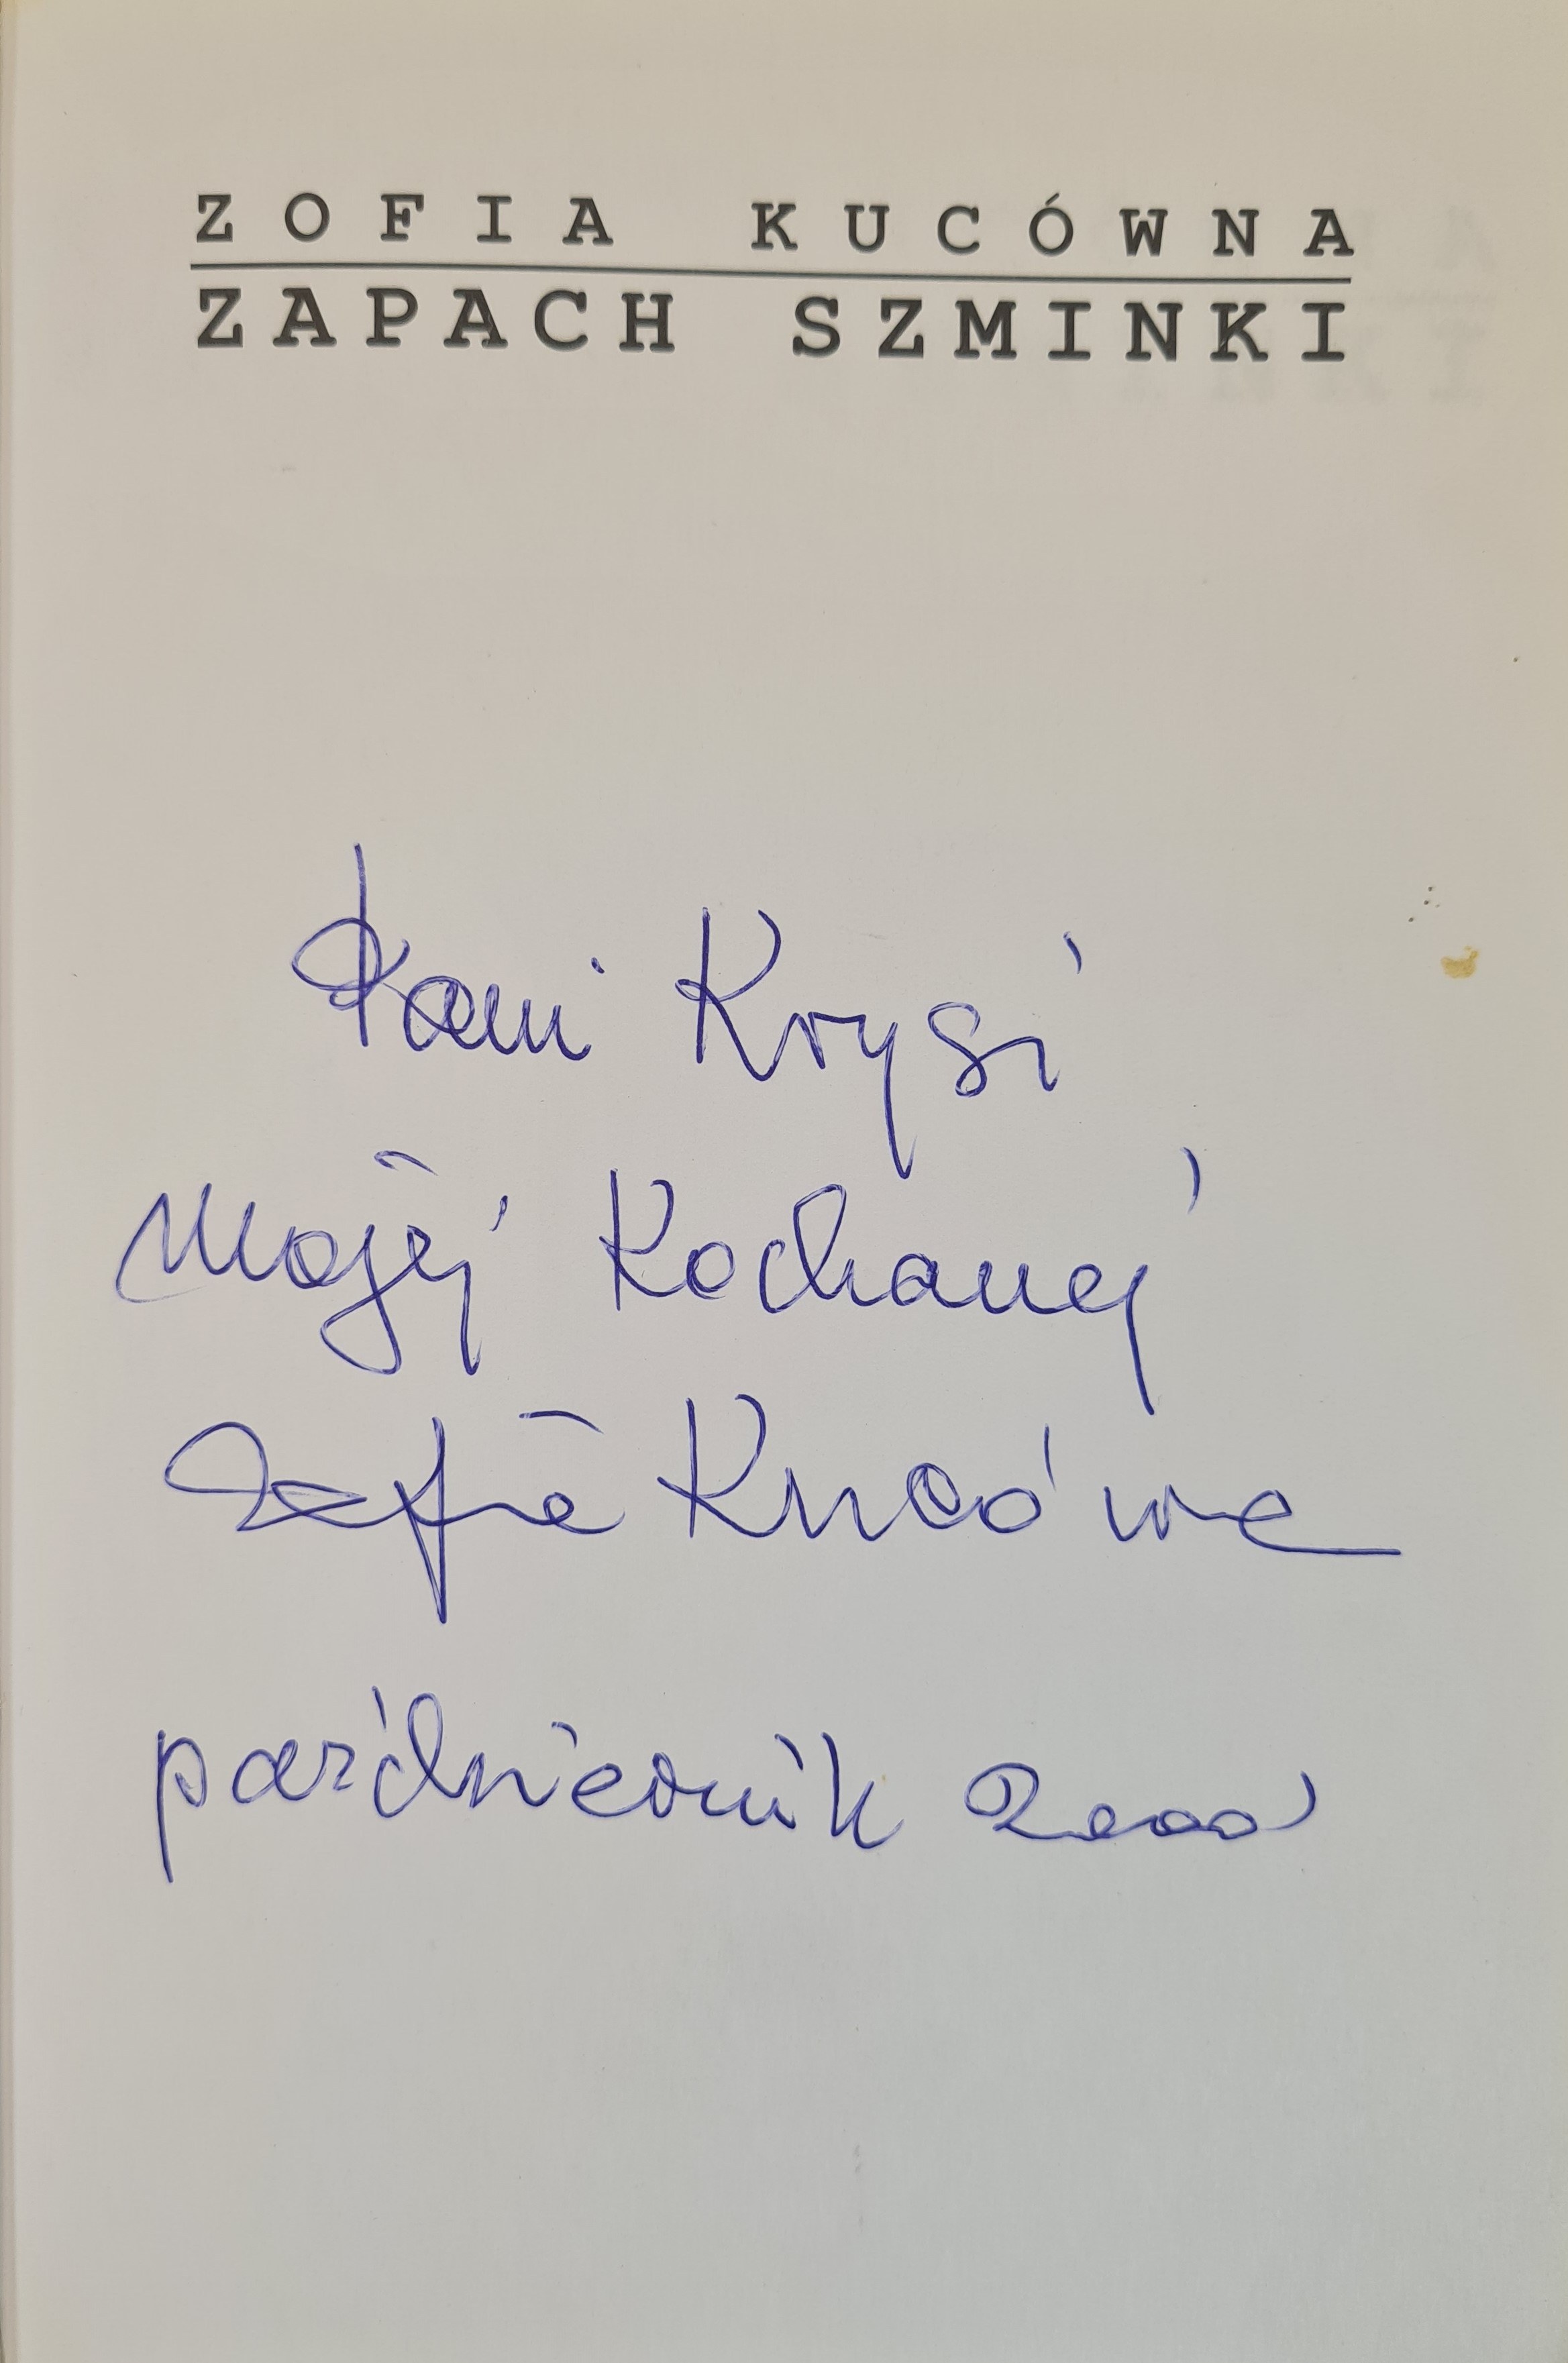 ZOFIA KUCÓWNA
ZAPACH SZMINKI
Pani Krysi
Mojej Kochanej
Zofia Kucówna
październik 2000